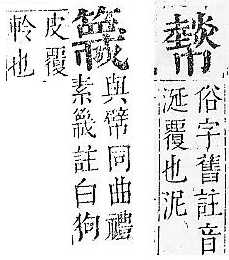 俗字舊註音
涎覆也泥
簚
與幦同曲禮
素簚註白狗
皮覆
軨也